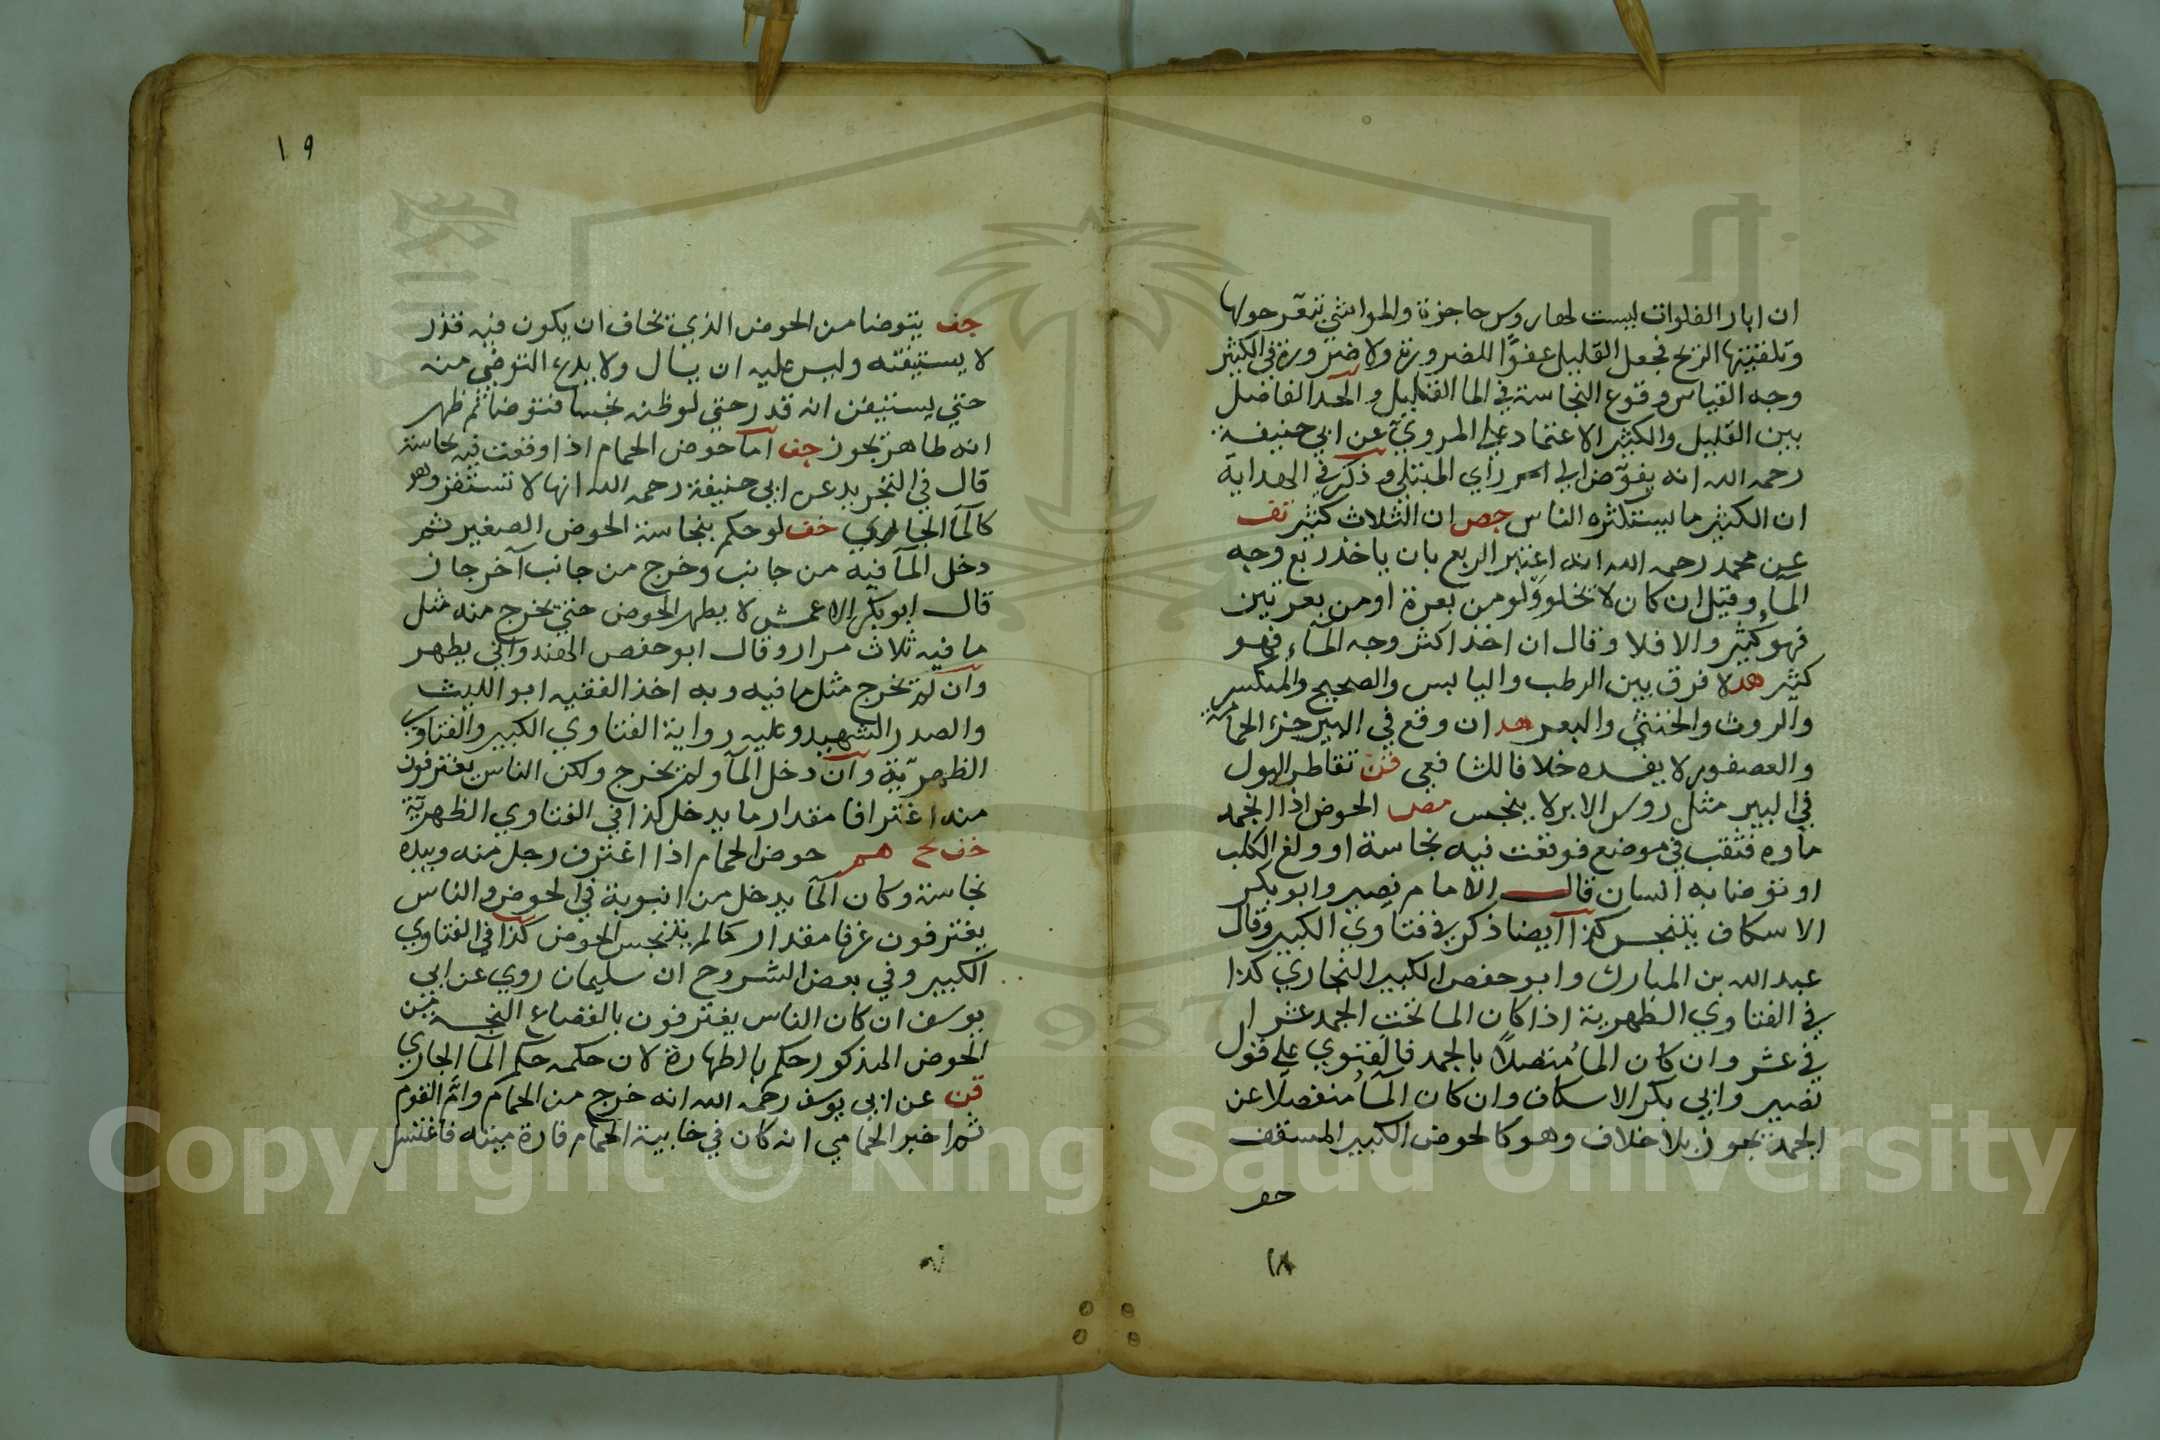 ان ابار الفلوات ليست لها روس حاجزة والمواشي تبعر حولها
وتلقيها الريح فجعل القليل عفوًا للضرورة ولا ضرورة في الكثير
وجه القياس وقوع النجاسة في الما القليل والحد الفاصل
بين القليل والكثير الاعتماد علي المروي عن ابي حنيفة
رحمه الله انه يفوض الي راي المبتلي وذكر في الهداية
ان الكثير ما يستكثره الناس جص ان الثلاث كثير تف
عن محمد رحمه الله انه اعتبر الربع بان ياخذ ربع وجه
الماء وقيل ان كان لا تخلو دلو من بعرة او من بعرتين
فهو كثير والا فلا وقال ان اخذ اكثر وجه الماء فهو
كثير هد لا فرق بين الرطب واليابس والصحيح والمنكسر
والروث والخثي والبعر هد ان وقع في البير خرء الحمامة
والعصفور لا يفسده خلافا للشافعي فتن تقاطر البول
في البير مثل روس الابر لا ينجس مص الحوض اذا انجمد
ماوه فثقب في موضع فوقعت فيه نجاسة او ولغ الكلب
او توضا به انسان قال الامام نصير وابو بكر
الاسكاف يتنجس كذا ايضا ذكر في فتاوي الكبير وقال
عبد الله بن المبارك وابو حفص الكبير البخاري كذا
في الفتاوي الظهرية اذا كان الما تحت الجمد عشرا
في عشر وان كان الماُ متصلاً بالجمد فالفتوي علي قول
نصير وابي بكر الاسكاف وان كان الماُ منفصلاً عن
الجمد يجوز بلا خلاف وهو كالحوض الكبير المسقف
جف
١٨
١٩
جف يتوضا من الحوض الذي تخاف ان يكون فيه قذر
لا يستيقنه وليس عليه ان يسال ولا يدع التوضي منه
حتي يستيقن انه قدر حتي لو ظنه نجسا فتوضا ثم ظهر
انه طاهر يجوز جف اما حوض الحمام اذا وقعت فيه نجاسة
قال في التجريد عن ابي حنيفة رحمه الله انها لا تستقر وهو
كالما الجاري خف لو حكم بنجاسة الحوض الصغير ثم
دخل الما فيه من جانب وخرج من جانب آخر جاز
قال ابو بكر الاعمش لا يطهر الحوض حتي يخرج منه مثل
ما فيه ثلاث مرار وقال ابو حفص الهندواني يطهر
وان لم تخرج مثل ما فيه وبه اخذ الفقيه ابو الليث
والصدر الشهيد وعليه رواية الفتاوي الكبير والفتاوي
الظهرية وان دخل الما ولم يخرج ولكن الناس يغترفون
منه اغترافا مقدار ما يدخل كذا في الفتاوي الظهرية
خف نح هم حوض الحمام اذا اغترف رجل منه وبيده
نجاسة وكان الما يدخل من انبوبة في الحوض والناس
يغترفون غرفا مقدار ما لم يتنجس الحوض كذا في الفتاوي
الكبير وفي بعض الشروح ان سليمان روي عن ابي
يوسف ان كان الناس يغترفون بالقصاع النجسة من
الحوض المذكور حكم بالطهارة لان حكمه حكم الما الجاري
قن عن ابي يوسف رحمه الله انه خرج من الحمام وامّ القوم
ثم اخبر الحمامي انه كان في خابية الحمام فارة ميته فاغتسل
1957
Copyright © King Saud University